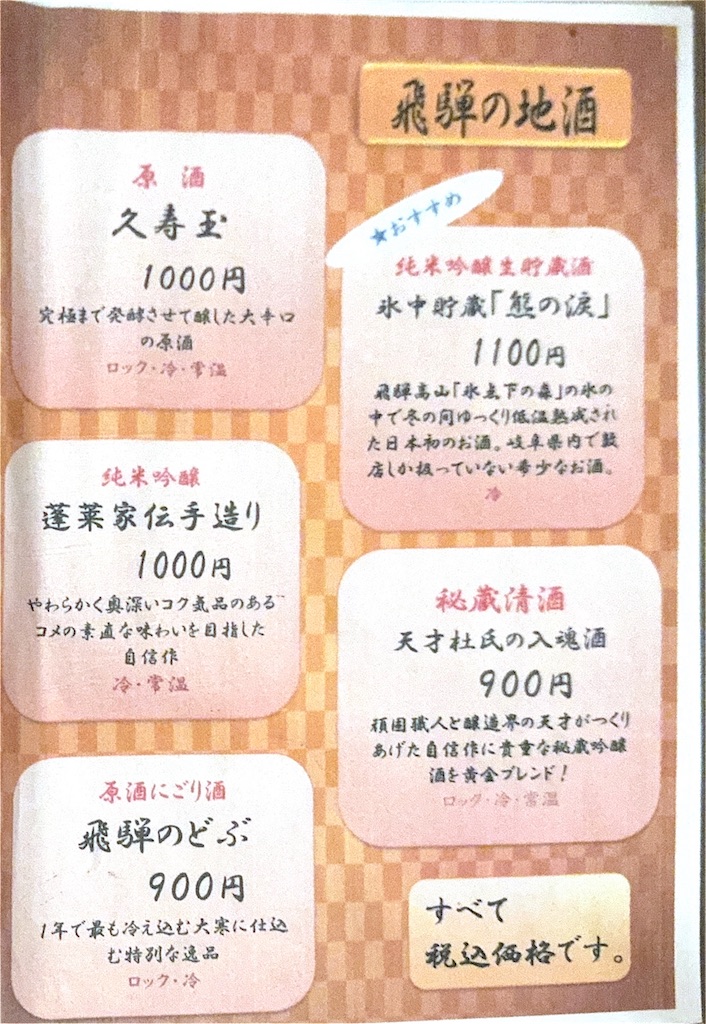 飛騨の地酒
★おすすめ
純米吟醸生貯蔵酒
氷中貯蔵「熊の涙」
1100円
飛騨高山「氷点下の森」の氷の
中で冬の間ゆっくり低温熟成され
た日本初のお酒。岐阜県内で数
店しか扱っていない希少なお酒。
冷
秘蔵清酒
天才杜氏の入魂酒
900円
頑固職人と醸造界の天才がつくり
あげた自信作に貴重な秘蔵吟醸
酒を黄金ブレンド!
ロック・冷・常温
原酒
久寿玉
1000円
究極まで発酵させて醸した大辛口
の原酒
ロック・冷・常温
純米吟醸
蓬莱家伝手造り
1000円
やわらかく奥深いコク気品のある
コメの素直な味わいを目指した
自信作
冷・常温
原酒にごり酒
飛騨のどぶ
900円
1年で最も冷え込む大寒に仕込
む特別な逸品
ロック・冷
すべて
税込価格です。